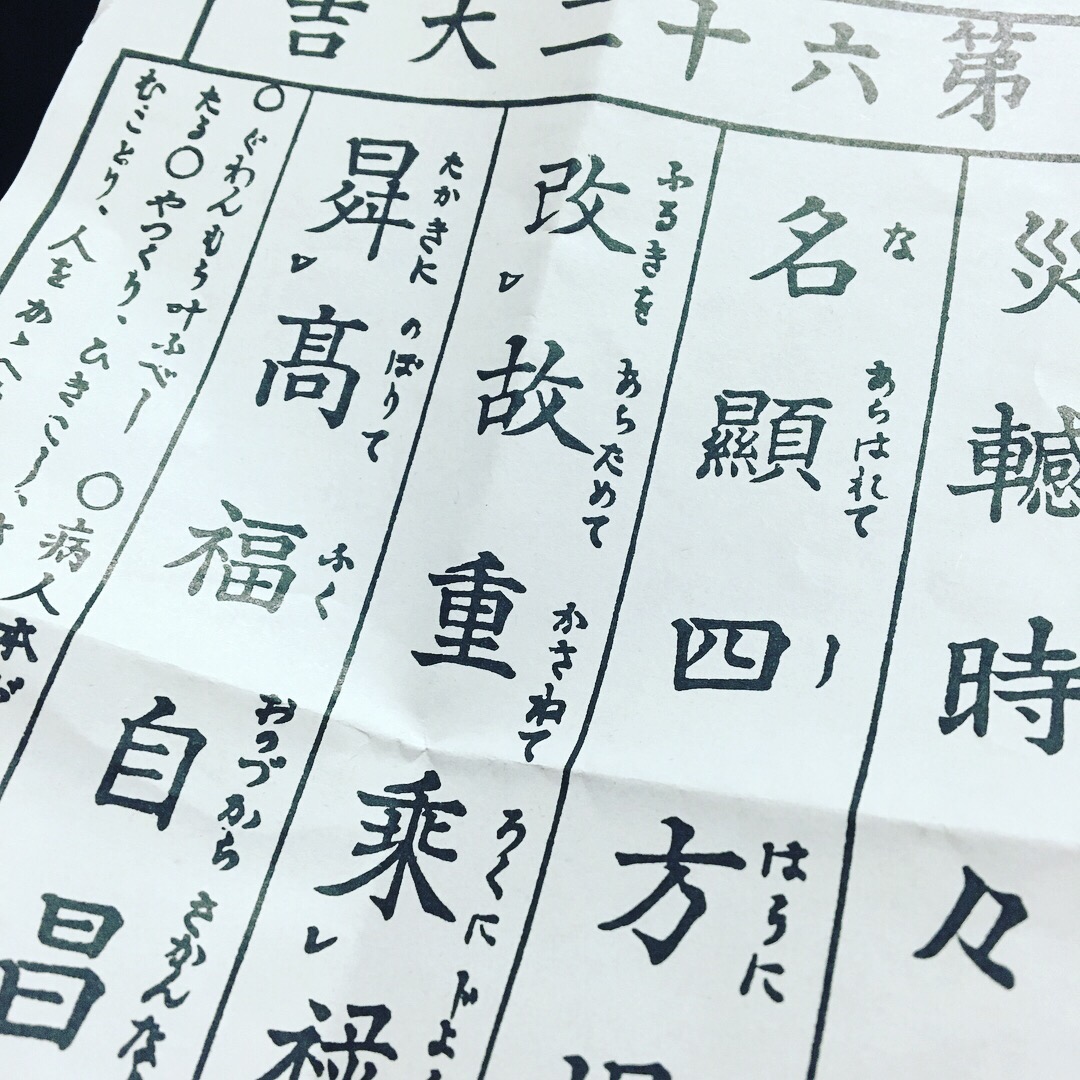 第六十二大吉
災轗時々
な あらはれて し はうに
名顯四方
ふるきを あらためて かさねて ろくに じよ
改レ故重乗レ禄
たかきに のぼりて ふく おのづから さかんな
曻レ髙福自昌
○ぐわんもう叶ふべし ○病人本ぶ
たる○やつくり、ひきこし、
むことり、人をかゝへ